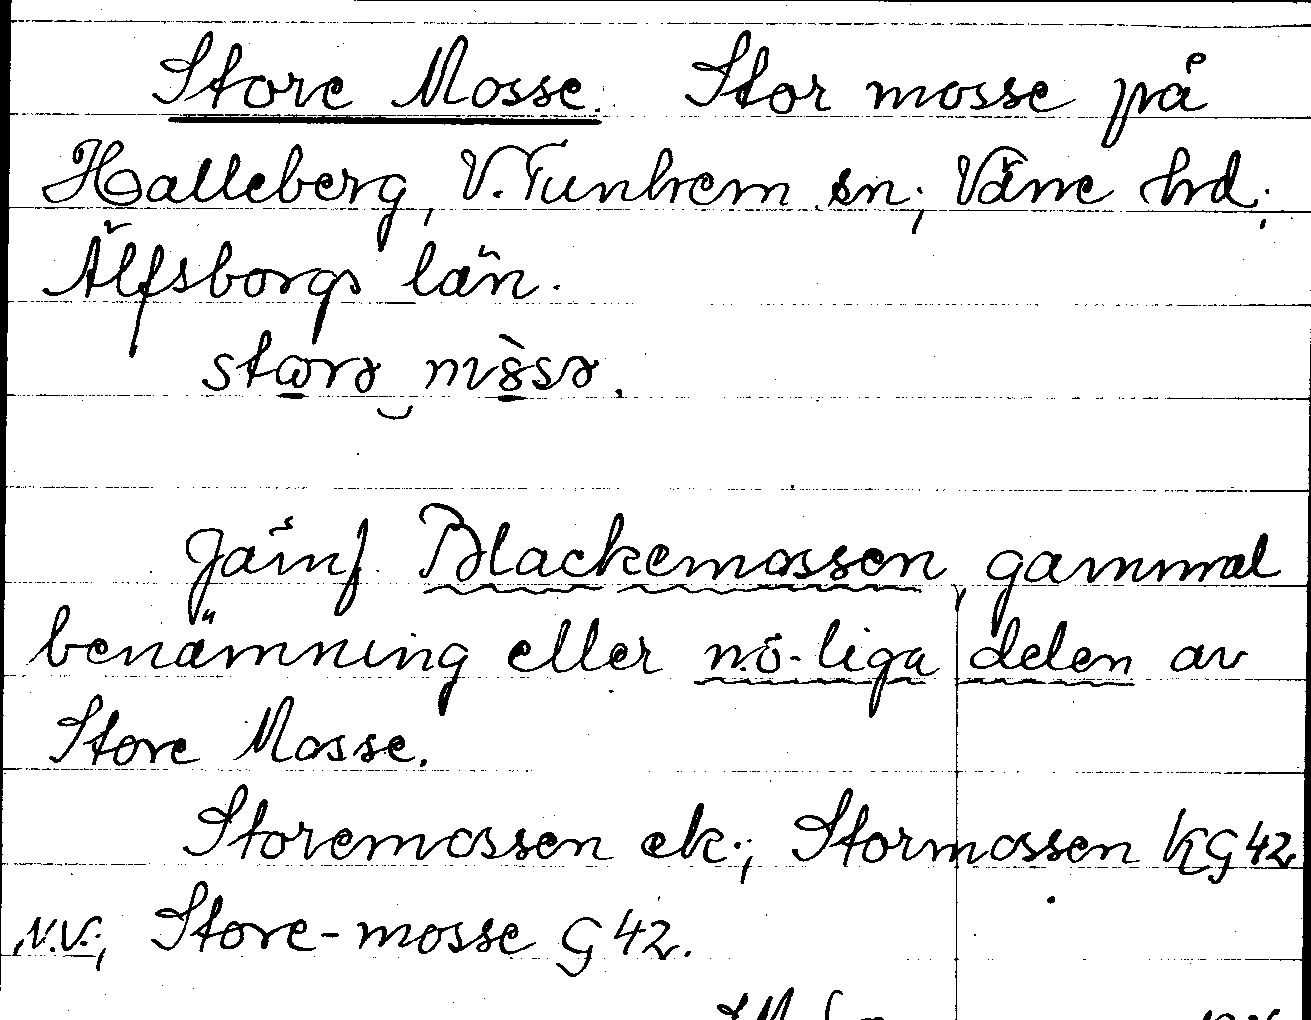 Store Mosse. Stor mosse på
Halleberg, V. Tunhem sn; Väne hd.
Älfsborgs län.
storə mòssə.
Jämf. Blackemossen, gammal
benämning eller n.ö.-liga delen av
Store Mosse.
Storemossen ek.; Stormossen KG 42
N.V.; Store-mosse G 42.